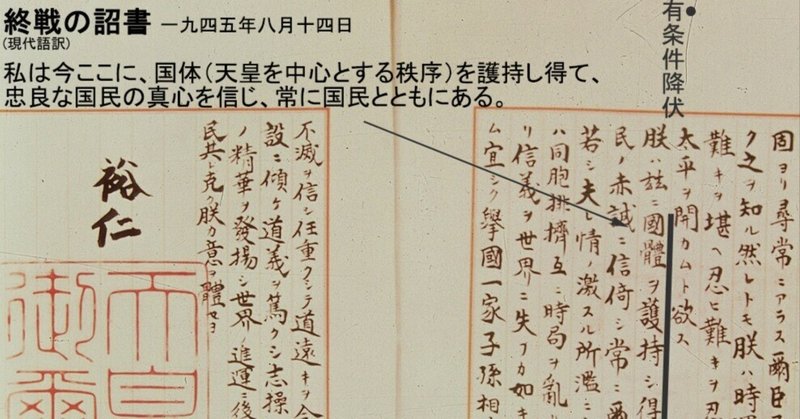 終戦の詔書 一九四五年八月十四日
(現代語訳)
私は今ここに、国体(天皇を中心とする秩序)を護持し得て、
忠良な国民の真心を信じ、常に国民とともにある。
有条件降伏
固ヨリ尋常ニアラス爾臣
ク之ヲ知ル然レトモ朕ハ時
難キヲ堪ヘ忍ヒ難キヲ忍
太平ヲ開カムト欲ス
朕ハ茲ニ國體ヲ護持シ得
民ノ赤誠ニ信倚シ常ニ爾
若シ夫レ情ノ激スル所濫ニ
ハ同胞排擠互ニ時局ヲ亂
リ信義ヲ世界ニ失フカ如キ
ム宜シク擧國一家子孫相
不滅ヲ信シ任重クシテ道遠キヲ念
設ニ傾ケ道義ヲ篤クシ志操
ノ精華ヲ發揚シ世界ノ進運ニ後
民其レ克ク朕カ意ヲ體セヨ
裕仁
天皇
御璽